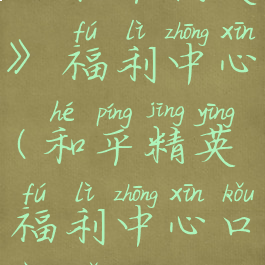 fú lì zhōng xīn
》福利中心
hé píng jīng yīng
(和平精英
fú lì zhōng xīn kǒu
福利中心口